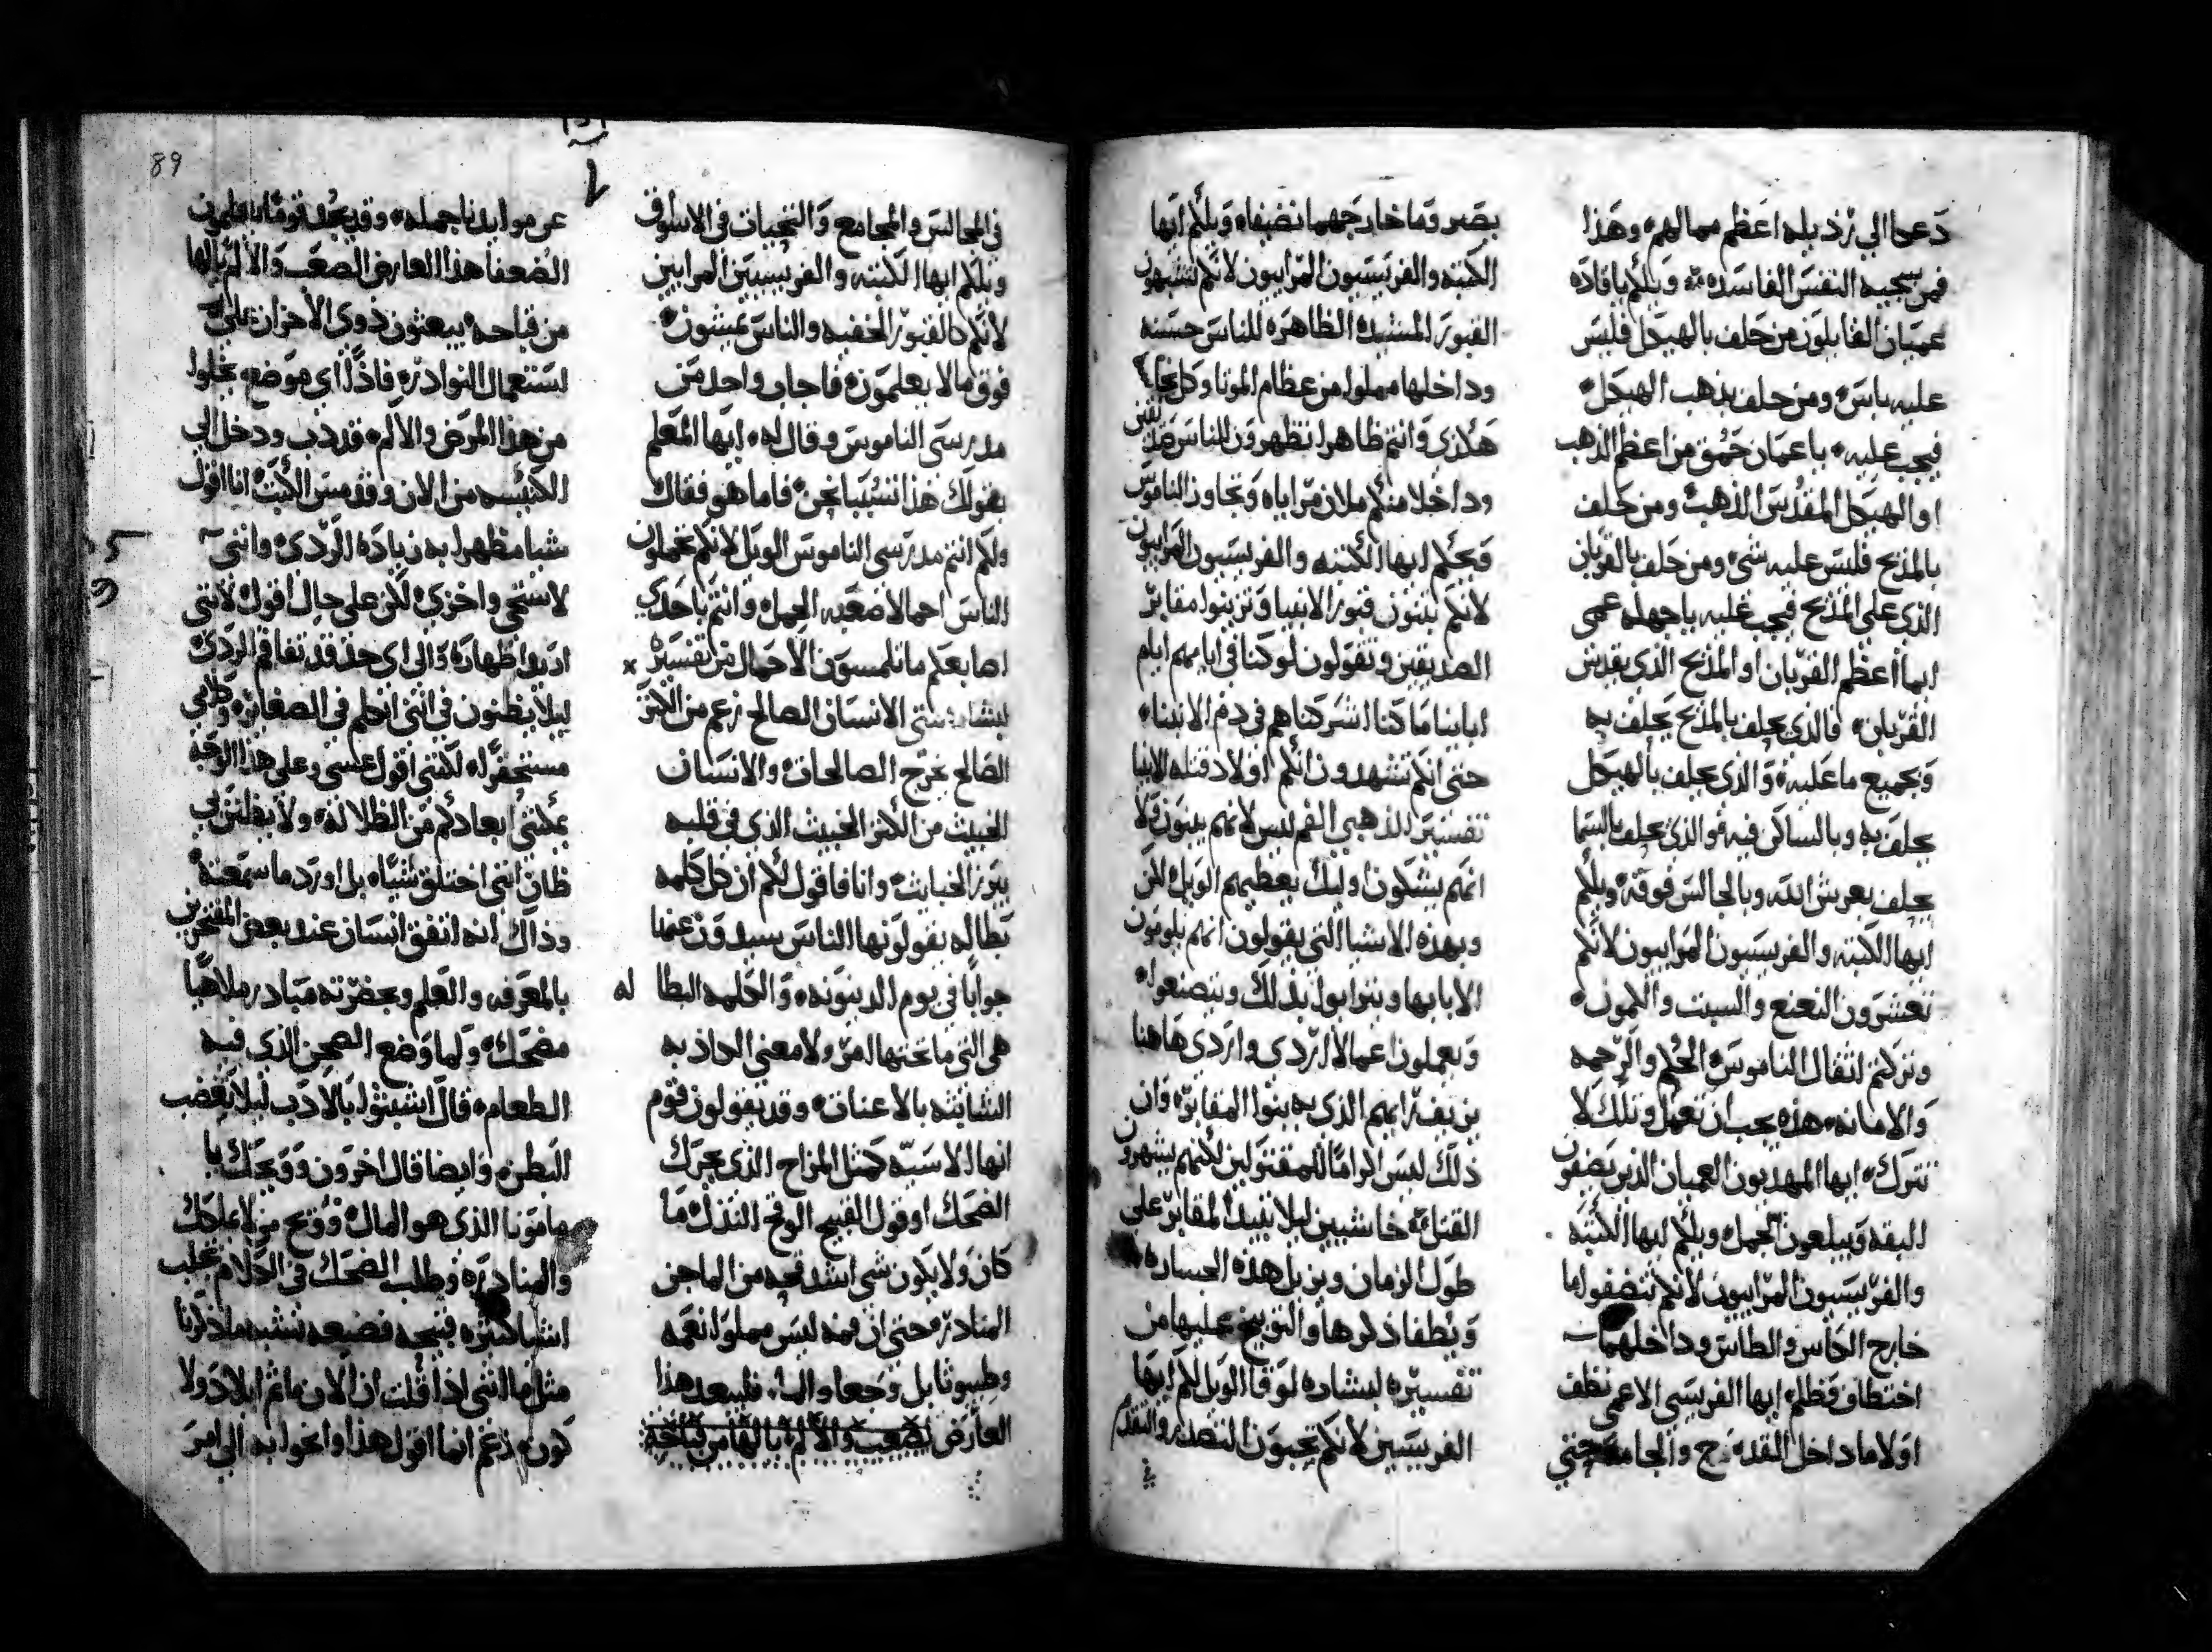 دعوا الي رذيله اعظم مما لهم؛ وهذا
فمن سجيه النفس الفاسده؛ ويلكم يا قاده
عميان القايلون من حلف بالهيكل فليس
عليه باس؛ ومن حلف بذهب الهيكل؛
فيجب عليه؛ يا عميان حمق من اعظم الذهب
او الهيكل المقدس الذهب؛ ومن حلف
بالمذبح فليس عليه شي ومن حلف بالقربان
الذي علي المذبح فيجب عليه يا جهله عمي
ايما اعظم القربان او المذبح الذي يقدس
القربان؛ فالذي يحلف بالمذبح يحلف به
وبجميع ما عليه؛ والذي يحلف بالهيكل
يحلف به وبالساكن فيه؛ والذي يحلف بالسما
يحلف بعرش الله وبالجالس فوقه؛ ويلكم
ايها الكتبه والفريسيون المراييون لانكم
تعشرون النعنع والسبت والكمون؛
وتركتم اثقال الناموس؛ الحكم والرحمه
والامانه؛ هذه يجب ان تعمل وتلك لا
تترك؛ ايها المهديون العميان الذين يصفون
البقه ويبلعون الجمل؛ ويلكم ايها الكتبه
والفريسيون المراييون لانكم تنضفوا ما
خارج الكاس والطاس وداخلهما
اختطاف وظلم؛ ايها الفريسي الاعمي نظف
اولا ما داخل القدح والجامه حتي
بصير وما خارجهما نضيفا؛ ويلكم ايها
الكتبه والفريسيون المراييون لانكم تشبهون
القبور المشيده الظاهره للناس حسنه
وداخلها مملوا من عظام الموتا وكل نجا
هكذي وانتم ظاهرا تظهرون للناس
وداخلا منكم ملان مراياه وتجاوز الناموس
ويحكم ايها الكتبه والفريسيون المراييون
لانكم تبنون قبور الانبيا وتزينوا مقابر
الصديقين وتقولون لو كنا في ايامهم ايام
اباينا ما كنا اشركناهم في دم الانبيا؛
حتي انكم تشهدون انكم اولاد قتله الانبيا
تفسير الذهبي الفم ليس لانهم يبنون ولا
انهم يشكون اوليك يعظيهم الويل لكن
وبهذه الاشيا التي يقولون انهم يلومون
الابا بها وينزابوا بذلك ويتصنعوا؛
ويعملون اعمالا اردي واردي هاهنا
يزيف رايهم الذي به يبنوا المقابر؛ وان
ذلك ليس اكراما للمقتولين لكنهم يشهرون
القتل؛ خاشيين ليلا تبيد المقابر علي
طول الزمان ويزيل هذه الجساره
ويطفا ذكرها والتوبيخ عليها من
تفسيره لبشاره لوقا الويل لكم ايها
الفريسيين لانكم تحبون التصدر والتقدم
89
في المجالس والمجامع والتحيات في الاسواق
ويلكم ايها الكتبه والفريسيين المرايين
لانكم كالقبور الخفيه والناس يمشون؛
فوق ما لا يعلمون؛ فاجاب واحد من
مدرسي الناموس وقال له؛ ايها المعلم
بقولك هذا تسبنا نحن؛ فاما هو فقال
ولكم انتم مدرسي الناموس الويل لانكم تحملون
الناس احمالا صعبه الحمل؛ وانتم باحدي
اصابعكم ما تلمسون الاحمال من تفسيره
لبشاره متي الانسان الصالح زعم من الكنز
الصالح يخرج الصالحات؛ والانسان
الخبيث من الكنز الخبيث الذي في قلبه
يبرز الخبايث؛ وانا فاقول لكم ان كل كلمه
بطاله يقولونها الناس سيدون عنها
جوابا في يوم الدينونه؛ والكلمه البطا له
هي التي ما تحتها امر ولا معني الكاذبه
الشاينه بالاعناق؛ وقد يقولون قوم
انها الاسيه كمثل المزاح الذي يحرك
الضحك او قول القبيح الوقح النذل؛ ما
كان ولا يكون شي اشد قبحه من الماجن
المنادر؛ حتي ان فمه ليس مملوا نعمه
وطيبوثا بل وجعا والما؛ فليبعد هذا
العارض بصعب والالم يا لها من قباحه
عن موايدنا جمله؛ وقد يجد قوما يعلمون
الضعفا هذا العارض الصعب والالم يالها
من قباحه؛ يبعثون ذوي الاحزان علي
لستعمال النوادر؛ فاذًا اي موضع يخلوا
من هذا المرض والالم؛ قد دب ودخل الي
الكنيسه من الان وقد مس الكتب؛ انا اقول
شيا مظهرا به زياده الردي؛ وانني
لاستحي واخزي؛ لكن علي حال اقول؛ لانني
اريد اظهاره؛ والي اي حد قد تفاقم الردي؛
ليلا يظنون في انني اتكلم في الصغاير؛ وكاني
مستحقرا؛ لكنني اقول عسي وعلي هذا الوجه
يمكنني ابعادكم من الظلاله؛ ولا يظنن بي
ظان انني اختلق شيا؛ بل اورد ما سمعته؛
وذاك انه اتفق انسان عند بعض المفتخرين
بالمعرفه والعلم وبحضرته منادر ملاهيا
مضحك؛ ولما وضع الصحن الذي فيه
الطعام؛ قال اشبثوا بالادب ليلا يغضب
البطن؛ وايضا قال اخرون وويحك يا
مامونا الذي هو المال؛ وويح من لا يملكك
والمنادره؛ وطلب الضحك في الكلام يجلب
اشيا كثيره قبيحه فضيعه تشبه ما ذكرنا
مثل ما انني اذا قلت ان الان ما ثم ايلاد ولا
كون؛ زعم انما اقول هذا وانحوا به الي امر